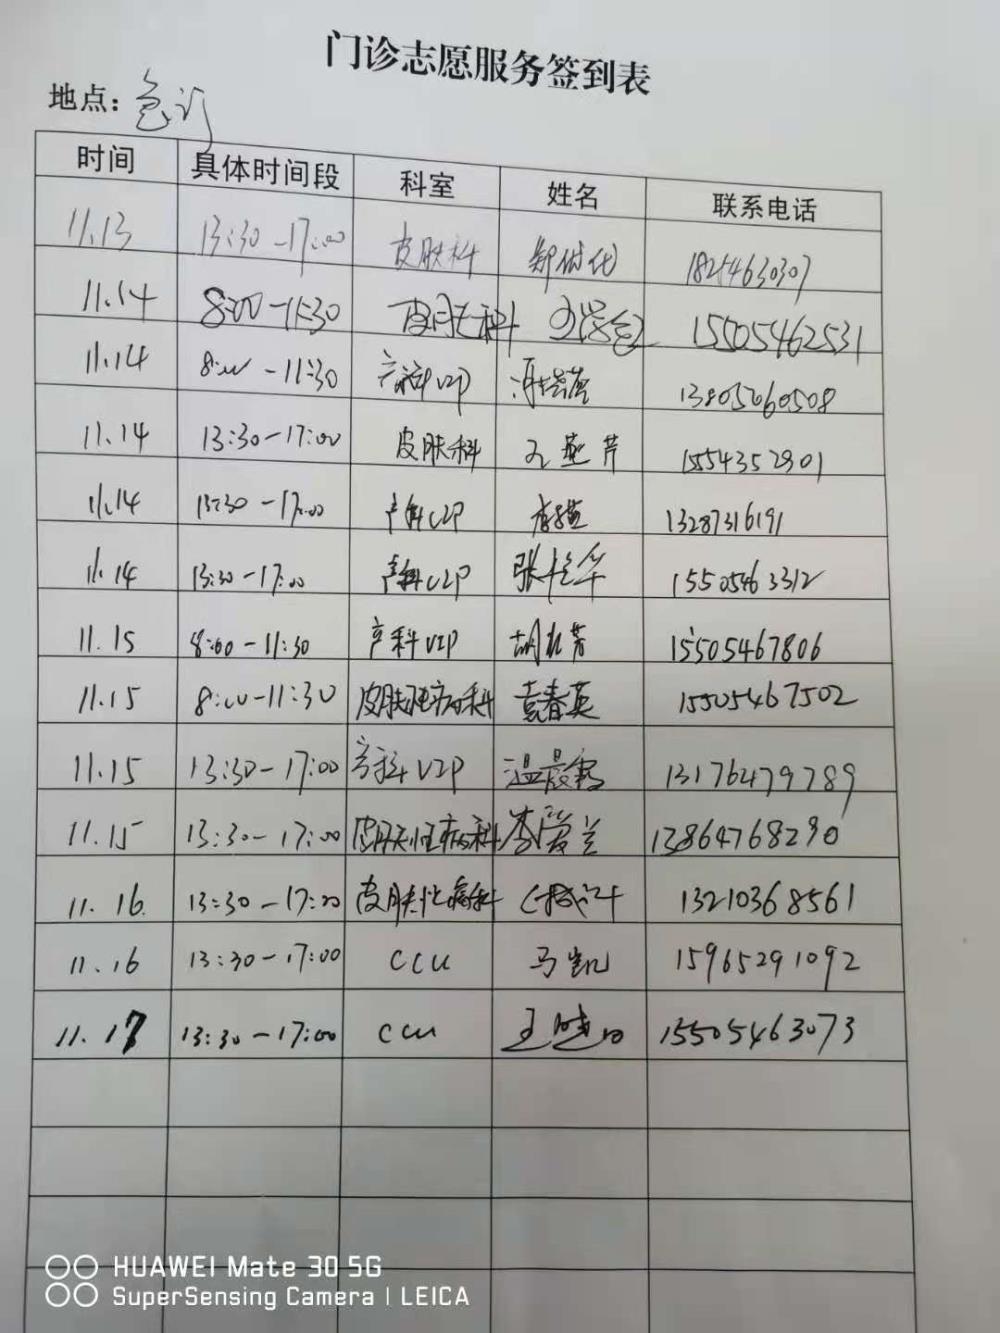 门诊志愿服务签到表
地点：急诊
时间 具体时间段 科室 姓名 联系电话
11.13 13:30-17:00 皮肤科
11.14 8:00-11:30 皮肤科 15505462531
11.14 8:00-11:30 产科VIP
11.14 13:30-17:00 皮肤科 孔燕芹 1554352801
11.14 13:30-17:00 产科VIP 13287316191
11.14 13:30-17:00 产科VIP 15505463312
11.15 8:00-11:30 产科VIP 15505467806
11.15 8:00-11:30 皮肤性病科 袁春英 15505467502
11.15 13:30-17:00 产科VIP 13176479789
11.15 13:30-17:00 皮肤性病科 李爱兰 13864768290
11.16 13:30-17:00 皮肤性病科 13210368561
11.16 13:30-17:00 CCU 马凯 15965291092
11.17 13:30-17:00 CCU 15505463073
HUAWEI Mate 30 5G
SuperSensing Camera | LEICA